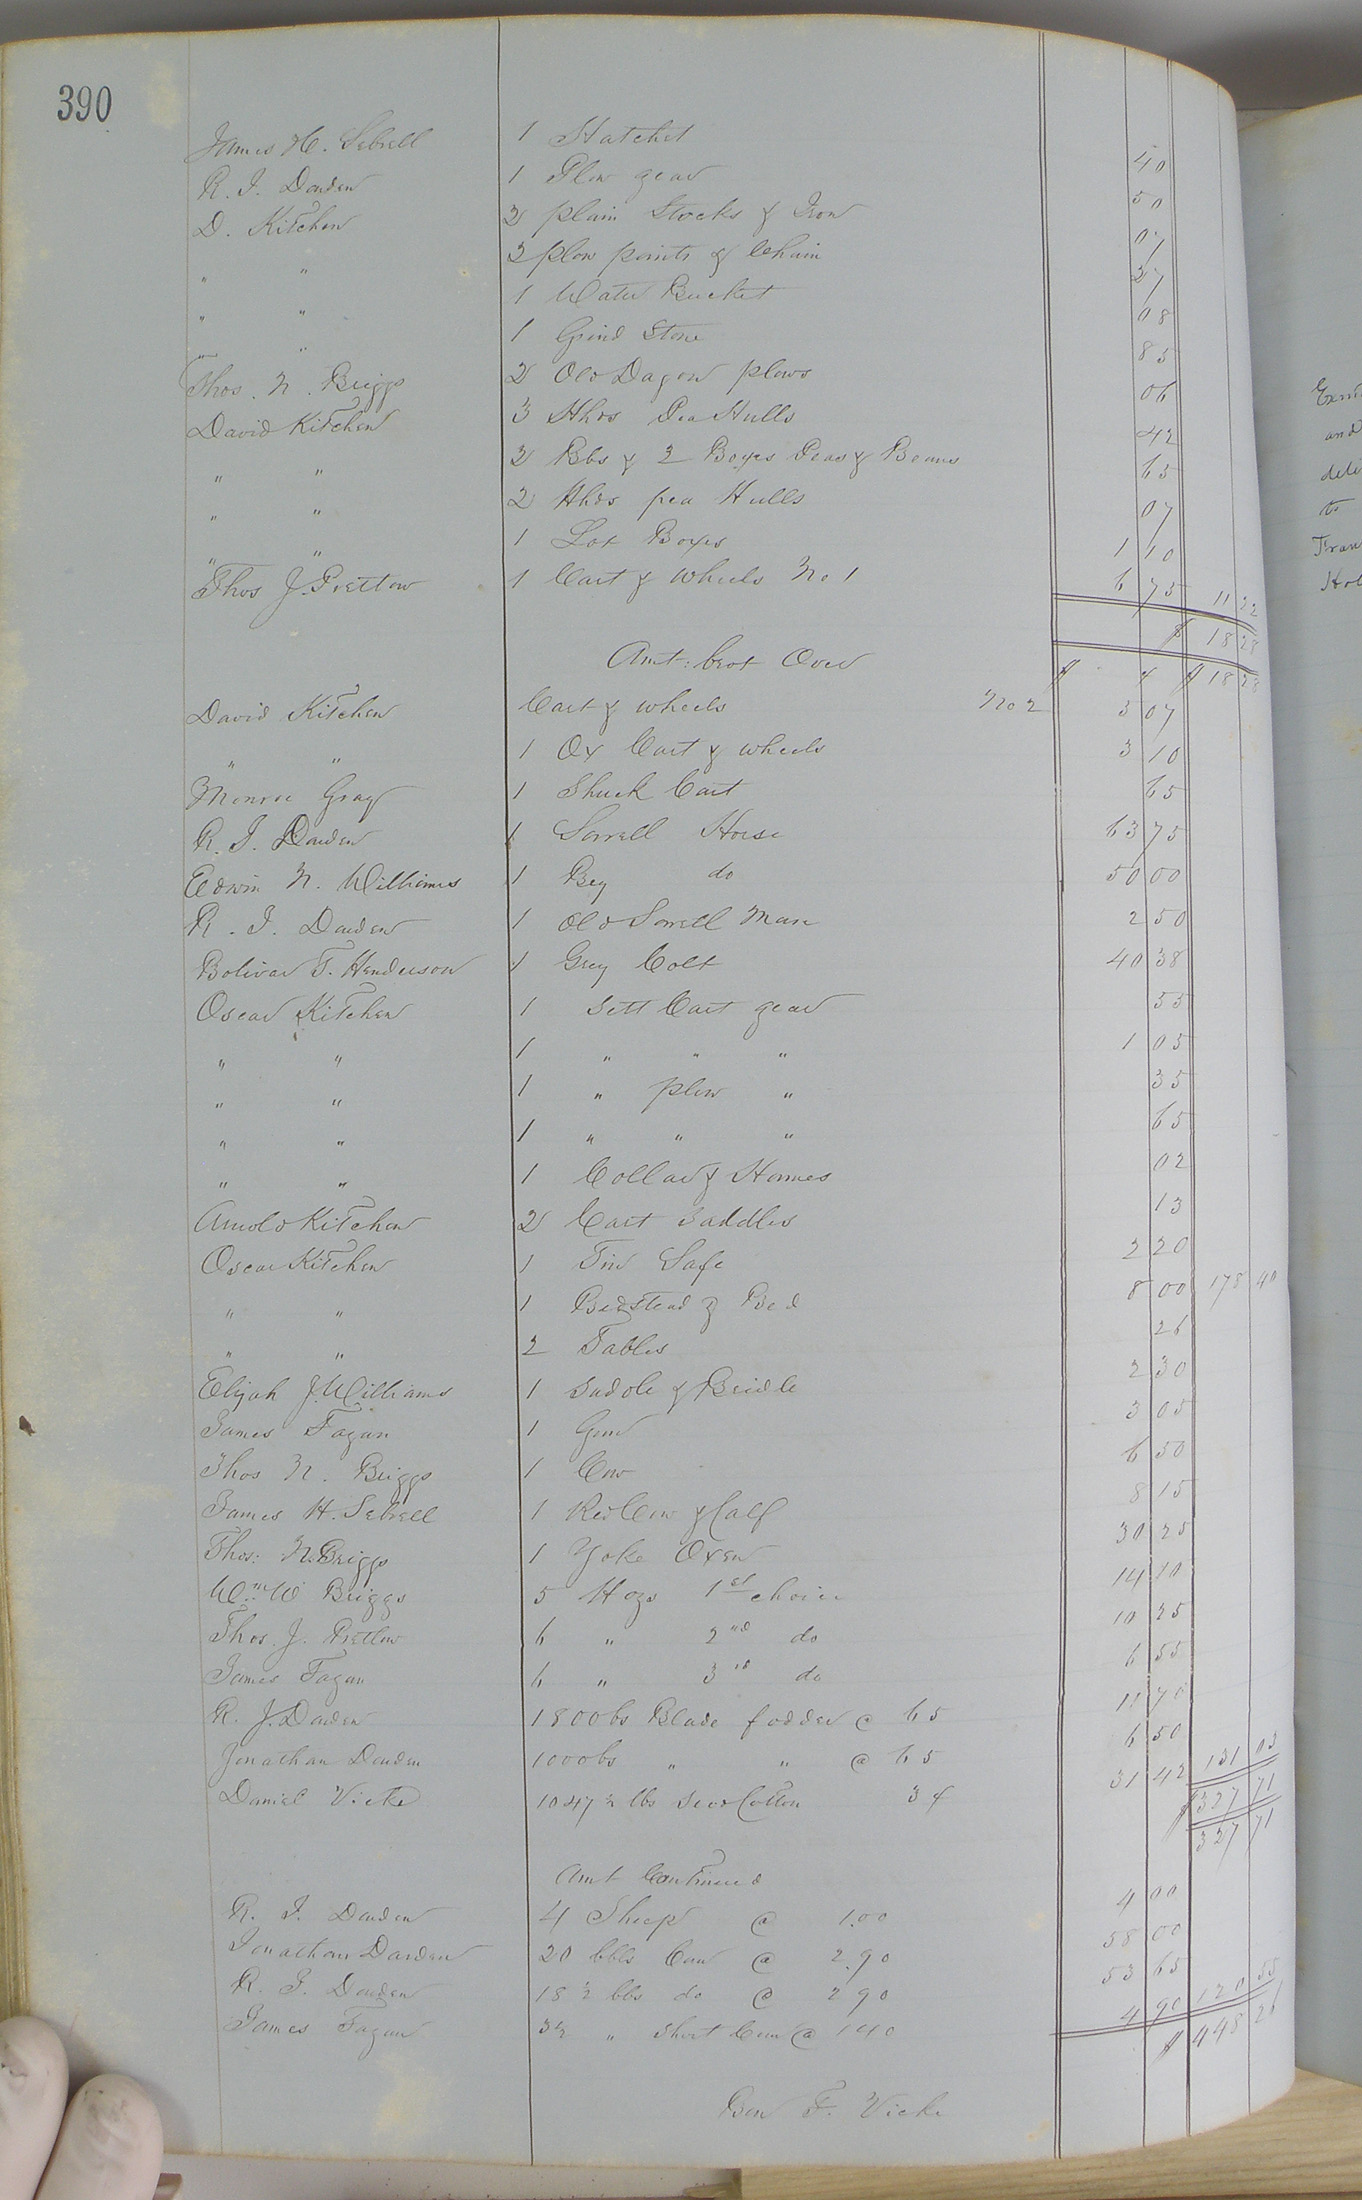 390
James H. Sebrell 1 Hatchet 40
R. J. Darden 1 Plow gear 50
D. Kitchen 2 plain Stocks & Iron 07
" " 2 plow points & Chain 27
" " 1 Water Bucket 08
" " 1 Grind Stone 85
Thos. N. Briggs 2 Old Dagon plows 06
David Kitchen 3 Hhds Pea Hulls 42
" " 2 Bbs & 2 Boxes Peas & Beans 65
" " 2 Hhds pea Hulls 07
" " 1 Lot Boxes 1 10
Thos J. Pretlow 1 Cart & Wheels No 1 6 75 11 22
$ 18 28
Amt: brot Over $ $ 18 28
David Kitchen Cart & wheels No 2 3 07
" " 1 Ox Cart & wheels 3 10
Monroe Gray 1 Shuck Cart 65
R. J. Darden 1 Sorrell Horse 63 75
Edwin N. Williams 1 Bey do 50 00
R. J. Darden 1 Old Sorrell Mare 2 50
Bolivar T. Henderson 1 Grey Colt 40 38
Oscar Kitchen 1 Sett Cart gear 55
" " 1 " " " 1 05
" " 1 " plow " 35
" " 1 " " " 65
" " 1 Collar & Hames 02
Arnold Kitchen 2 Cart Saddles 13
Oscar Kitchen 1 Tin Safe 2 20
" " 1 Bedstead & Bed 8 00 178 40
" " 2 Tables 26
Elijah J. Williams 1 Saddle & Bridle 2 30
James Fagan 1 Gun 3 05
Thos N. Briggs 1 Cow 6 50
James H. Sebrell 1 Red Cow & Calf 8 15
Thos: N. Briggs 1 Yoke Oxen 30 25
Wm W Briggs 5 Hogs 1st choice 14 10
Thos. J. Pretlow 6 " 2nd do 10 25
James Fagan 6 " 3rd do 6 55
R. J. Darden 1800 lbs Blade fodder @ 65 11 70
Jonathan Darden 1000 lbs " " @ 65 6 50
Daniel Vick 1047 ½ lbs Seed Cotton 3 ¢ 31 42 131 03
$ 327 71
327 71
Amt Continued
R. J. Darden 4 Sheep @ 1.00 4 00
Jonathan Darden 20 bbls Corn @ 2.90 58 00
R. J. Darden 18 ½ bbs do @ 2 90 53 65
James Fagan 3½ " Short Corn @ 140 4 90 120 55
$ 448 26
Ben F. Vick
Exm
and
deli
to
Fran
Hol